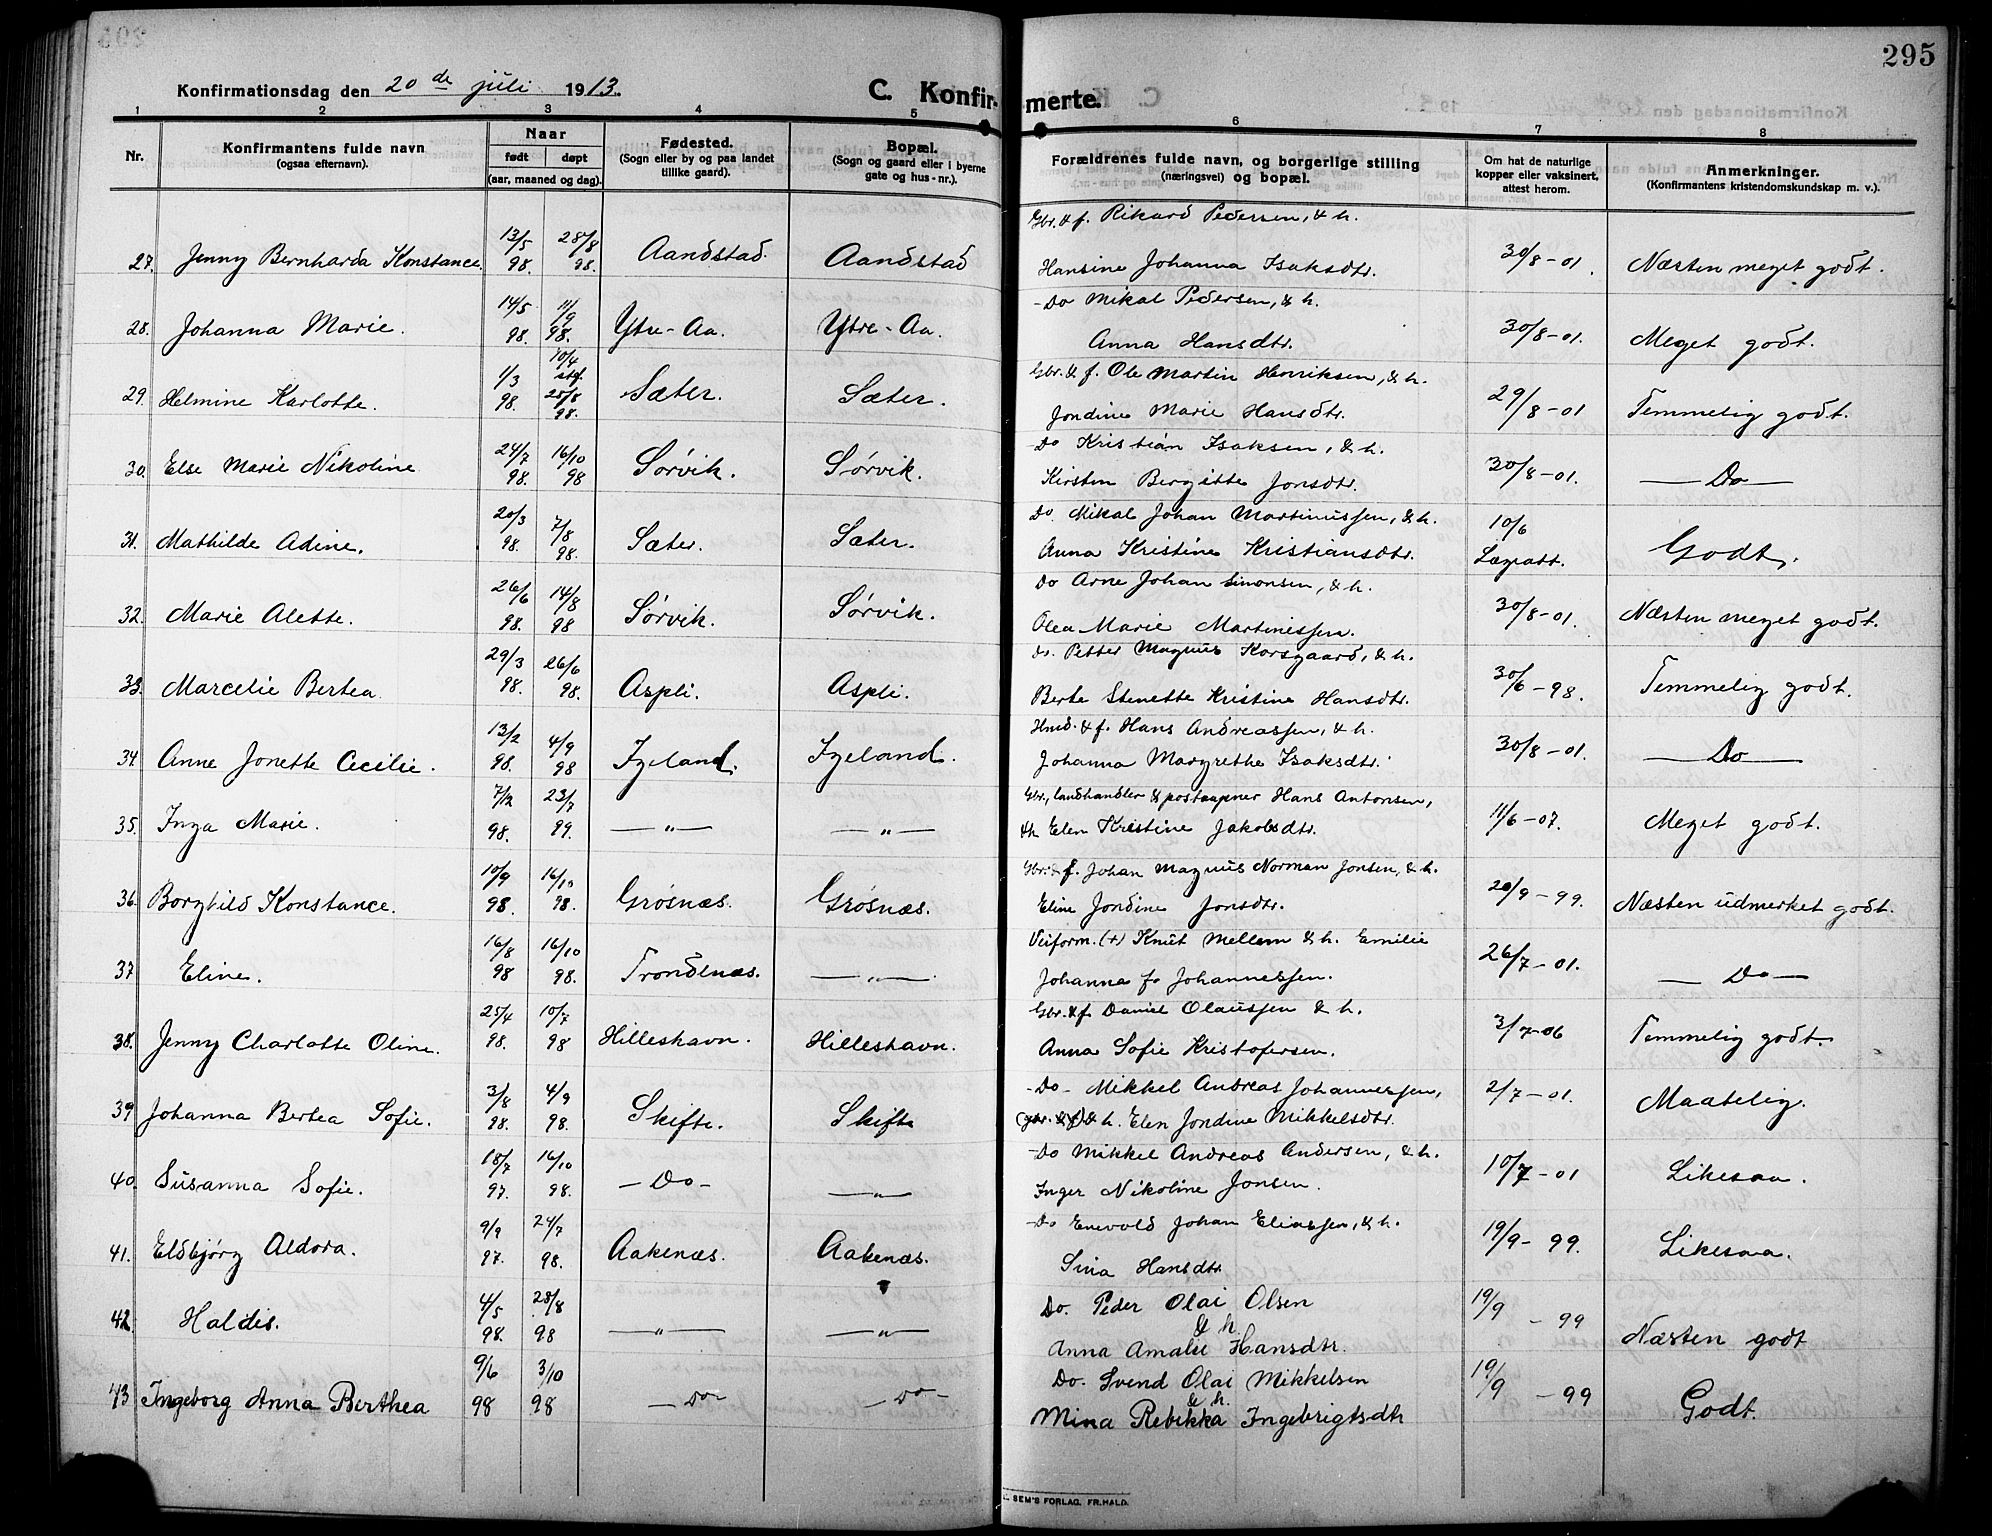 295
Konfirmationsdag den 20de juli 1913.
C. Konfirmerte.
1 2 3 4 5 6 7 8
Nr.
Konfirmantens fulde navn
(ogsaa efternavn).
Naar
født døpt
(aar, maaned og dag).
Fødested.
(Sogn eller by og paa landet
tillike gaard).
Bopæl.
(Sogn og gaard eller i byerne
gate og hus-nr.).
Forældrenes fulde navn, og borgerlige stilling
(næringsvei) og bopæl.
Om hat de naturlige
kopper eller vaksinert,
attest herom.
Anmerkninger.
(Konfirmantens kristendomskundskap m. v.).
Gbr. & f. Rikard Pedersen, & h.
27. Jenny Bernharda Konstance. 13/5 98. 28/8 98. Aandstad. Aandstad Hansine Johanna Isaksdtr. 30/8-01. Næsten meget godt.
Do Mikal Pedersen, & h.
28. Johanna Marie. 14/5 98. 11/9 98. Ytre-Aa. Ytre-Aa. Anna Hansdtr. 30/8-01. Meget godt.
Gbr. & f. Ole Martin Henriksen, & h.
29. Helmine Karlotte. 1/3 98. 10/4 stf. 28/8 98. Sæter. Sæter. Jondine Marie Hansdtr. 29/8-01 Temmelig godt.
Do Kristian Isaksen, & h.
30. Else Marie Nikoline 24/7 98. 16/10 98 Sørvik. Sørvik. Kirsten Bergitte Jonsdtr. 30/8-01. Do
Do. Mikal Johan Martinussen, & h.
31. Mathilde Adine. 20/3 98. 7/8 98. Sæter. Sæter. Anna Kristine Kristiansdtr. 10/6 Lægeatt. Godt.
Do Arne Johan Simonsen, & h.
32. Marie Alette. 26/6 98. 14/8 98 Sørvik. Sørvik. Olea Marie Martinessen. 30/8-01. Næsten meget godt.
Do. Petter Magnus Korsgaard, & h.
33. Marcelie Bertea 29/3 98. 26/6 98. Aspli. Aspli. Berte Stenette Kristine Hansdtr. 30/6-98. Temmelig godt.
Hmd. & f. Hans Andreassen, & h.
34. Anne Jonette Cecilie. 13/2 98. 4/9 98 Igeland. Igeland. Johanna Margrethe Isaksdtr. 30/8-01. Do
Gbr., landhandler & postaapner Hans Antonsen,
35. Inga Marie. 7/12 98. 23/7 99. -"- -"- & h Elen Kristine Jakobsdtr. 11/6-07. Meget godt.
Gbr. & f. Johan Magnus Norman Jonsen, & h.
36. Borghild Konstance. 10/9 98. 16/10 98. Grøsnæs. Grøsnæs. Eline Jondine Jonsdtr. 20/9-99. Næsten udmerket godt.
Veiform. (+) Knut Mellem & h. Emilie
37 Eline. 16/8 98 16/10 98. Trondenæs. -"- Johanna f. Johannessen. 26/7-01. Do
Gbr. & f. Daniel Olaussen & h.
38. Jenny Charlotte Oline. 25/4 98. 10/7 98 Hilleshavn. Hilleshavn. Anna Sofie Kristofersen. 3/7-06 Temmelig godt.
Do Mikkel Andreas Johannessen,
39 Johanna Bertea Sofie. 3/8 98. 4/9 98. Skifte. Skifte (gbr. & f) & h. Elen Jondine Mikkelsdtr. 2/7-01. Maatelig.
Do Mikkel Andreas Andersen, & h.
40. Susanna Sofie. 18/7 97. 16/10 98. Do -"- Inger Nikoline Jonsen. 10/7-01 Likesaa.
Do Enevold Johan Eliassen, & h.
41. Eldbjørg Aldora. 9/9 97. 24/7 98. Aakenæs. Aakenæs. Sina Hansdtr. 19/9-99. Likesaa.
Do. Peder Olai Olsen
& h.
42. Haldis. 4/5 98. 28/8 98 -"- -"- Anna Amalie Hansdtr. 19/9-99 Næsten godt
Do. Svend Olai Mikkelsen
& h.
43 Ingeborg Anna Berthea 9/6 98 3/10 98 Do Do Mina Rebekka Ingebrigtsdtr 19/9-99 Godt.
SEM'S FORLAG, FR.HALD.